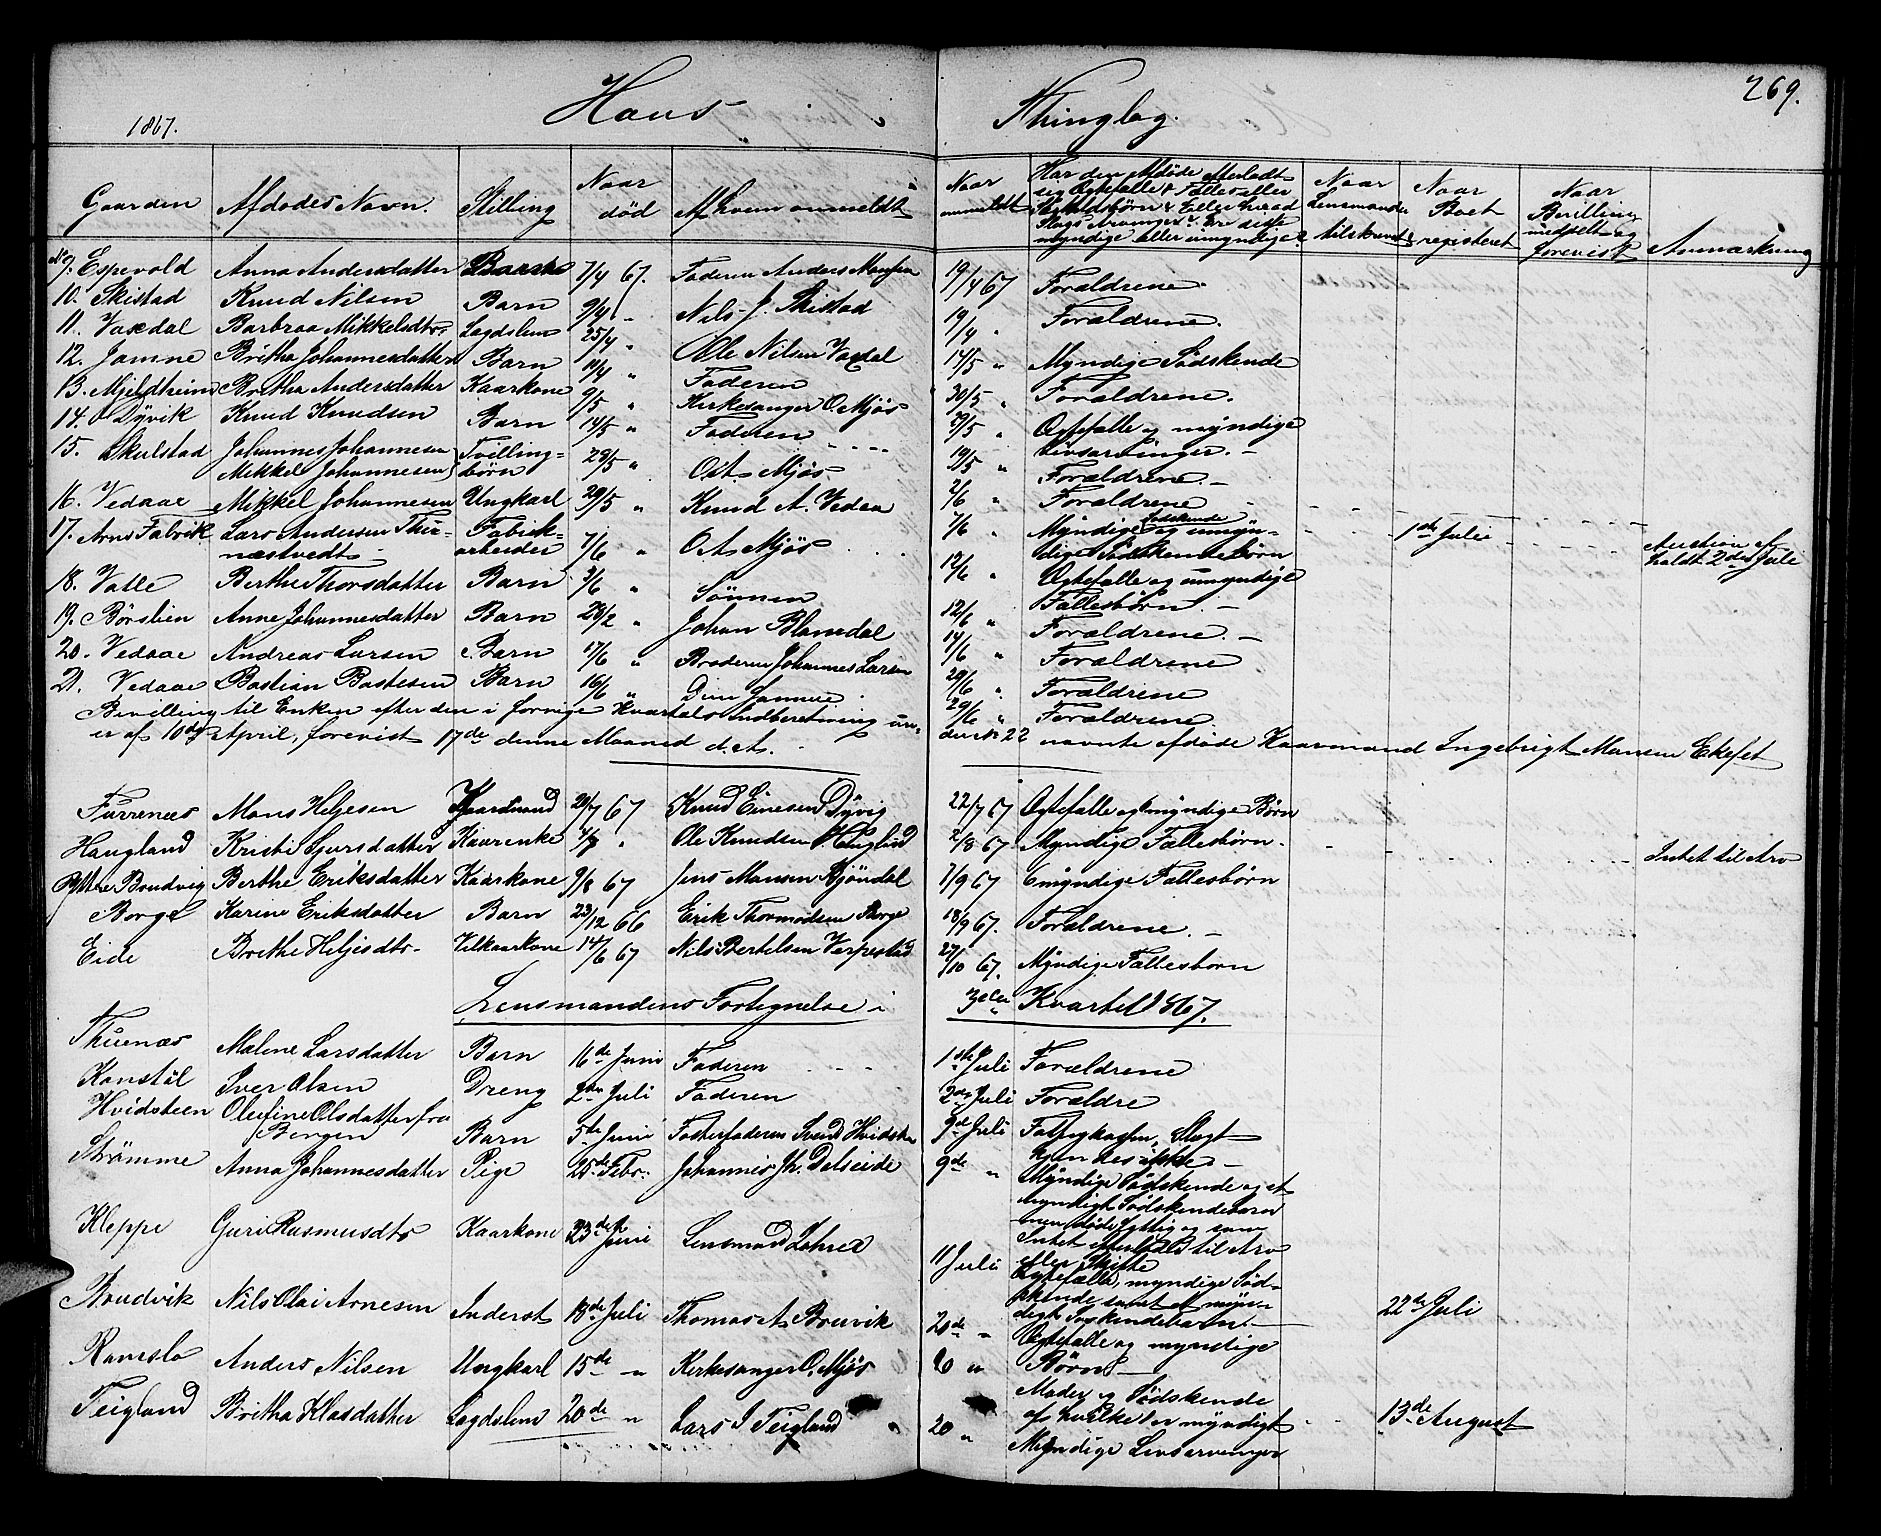 269.
1867.
Haus Thinglag.
Gaarden Afdødes Navn. Stilling Naar død Af hvem anmeldt Naar anmeldt Har den Afdøde efterladt sig Ægtefælle, Fælles eller Særkuldsbørn Eller hvad Slags Arvinger Er disse myndige eller umyndige Naar Lensmanden tilskrevet Naar Boet registeret Naar Bevilling udstedt og forevist Anmærkning
9. Espevold Anna Andersdatter Barn 7/4 67. Faderen Anders Monsen 19/4 67 Forældrene
10. Skistad Knud Nilsen Barn 9/4 Nils J. Skistad 19/4 " Forældrene.
11. Vaxdal Barbraa Mikkelsdtr Lægdslem 25/4 " Ole Nilsen Vaxdal 14/5 " Myndige Sødskende
12. Jamne Britha Johannesdatter Barn 10/4 " Faderen 30/5 " Forældrene.
13. Mjeldheim Britha Andersdatter Kaarkone 9/5 " Kirkesanger O. Mjøs 29/5 " Ægtefælle og myndige Livsarvinger. -
14. Dyvik Knud Knudsen Barn 14/5 " Faderen 19/5 " Forældrene -
15. Skulstad Johannes Johannesen Mikkel Johannesen Tvillingbørn 28/5 " O. A. Mjøs 2/6 " Forældrene -
16. Vedaae Mikkel Johannesen Ungkarl 29/5 " Knud A. Vedaa 7/6 " Myndige Sødskende og umyndige Sødskendebørn 1ste Julii Auction afholdt 2den Jule
17. Arne Fabrik Lars Andersen Thunæstvedt Fabrikarbeider 7/6 " O. A. Mjøs 12/6 " Ægtefælle og umyndige Fællesbørn. -
18. Valle Berthe Thorsdatter Barn 3/6 " Sønnen 12/6 " Forældrene. -
19. Børslien Anne Johannesdatter Barn 28/2 " Johan Blamdal 14/6 " Forældrene
20. Vedaae Andreas Larsen Barn 17/6 " Broderen Johannes Larsen 29/6 " Forældrene
21. Vedaae Bastian Bastesen Barn 16/6 " Den Samme 29/6 " Forældrene.
Bevilling til Enken efter den i forrige Kvartals Indberetning under No 22 nævnte afdøde Kaarmand Ingebrigt Monsen Ekeset
er af 10de April, forevist 17de denne Maaned d. A.
Furrenes Mons Helgesen Kaarmand 20/7 67 Knud Einesen Dyvig 22/7 67 Ægtefælle og umyndige Børn
Haugland Kristi Sjursdatter Kaarenke 4/7 " Ole Knudsen Hauglad 2/8 67 Myndige Fællesbørn. Intet til Arv
Yttre Brudvig Berthe Eriksdatter Kaarkone 9/8 67 Jens Monsen 7/9 67 Umyndige Fællesbørn
Borge Karine Eriksdatter Barn 23/12 66 Erik Thormodsen Borge 18/9 67. Forældrene. -
Eide Brithe Heljesdtr. Vilkaarkone 14/6 67 Nils Bertelsen Verpestad 27/10 67. Myndige Fællesbørn
Lensmandens Fortegnelse i 3die Kvartal 1867.
Thuenæs Malene Larsdatter Barn 16de Juni Faderen 1ste Juli Forældrene
Kanstøl Iver Olsen Dreng 2den Juli Faderen 2den Juli Forældre
Hvidsteen Olufine Olsdatter fra Bergen Barn 5te Juni Fosterfaderen Svend Hvidsten 9de Juli Slegt kjendes ikke. -
Strømme Anna Johannesdatter Pige 25de Febr. Johannes Jh. Dalseide 9de " Myndige Sødskende og et myndigt Sødskendebarn men døde fattig og uden Intet efterladt til Arv eller Skifte
Kleppe Guri Rasmusdtr Kaarkone 23de Juni Lensmand 11 Juli Ægtefælle, myndige Sødskende samt et myndigt Søskendebarn. -
Brudvik Nils Olai Arnesen Inderst 18de Juli Thomas A. Bruvik 20de " Ægtefælle og myndige Børn - 22de Juli
Ramslo Anders Nilsen Ungkarl 15de " Kirkesanger O. Mjøs 20 " Moder og Sødskende af hvilke 1 er myndigt 13de August
Teigland Britha Klasdatter Lægdslem 20de " Lars I. Teigland 20 " Myndige Livsarvinger